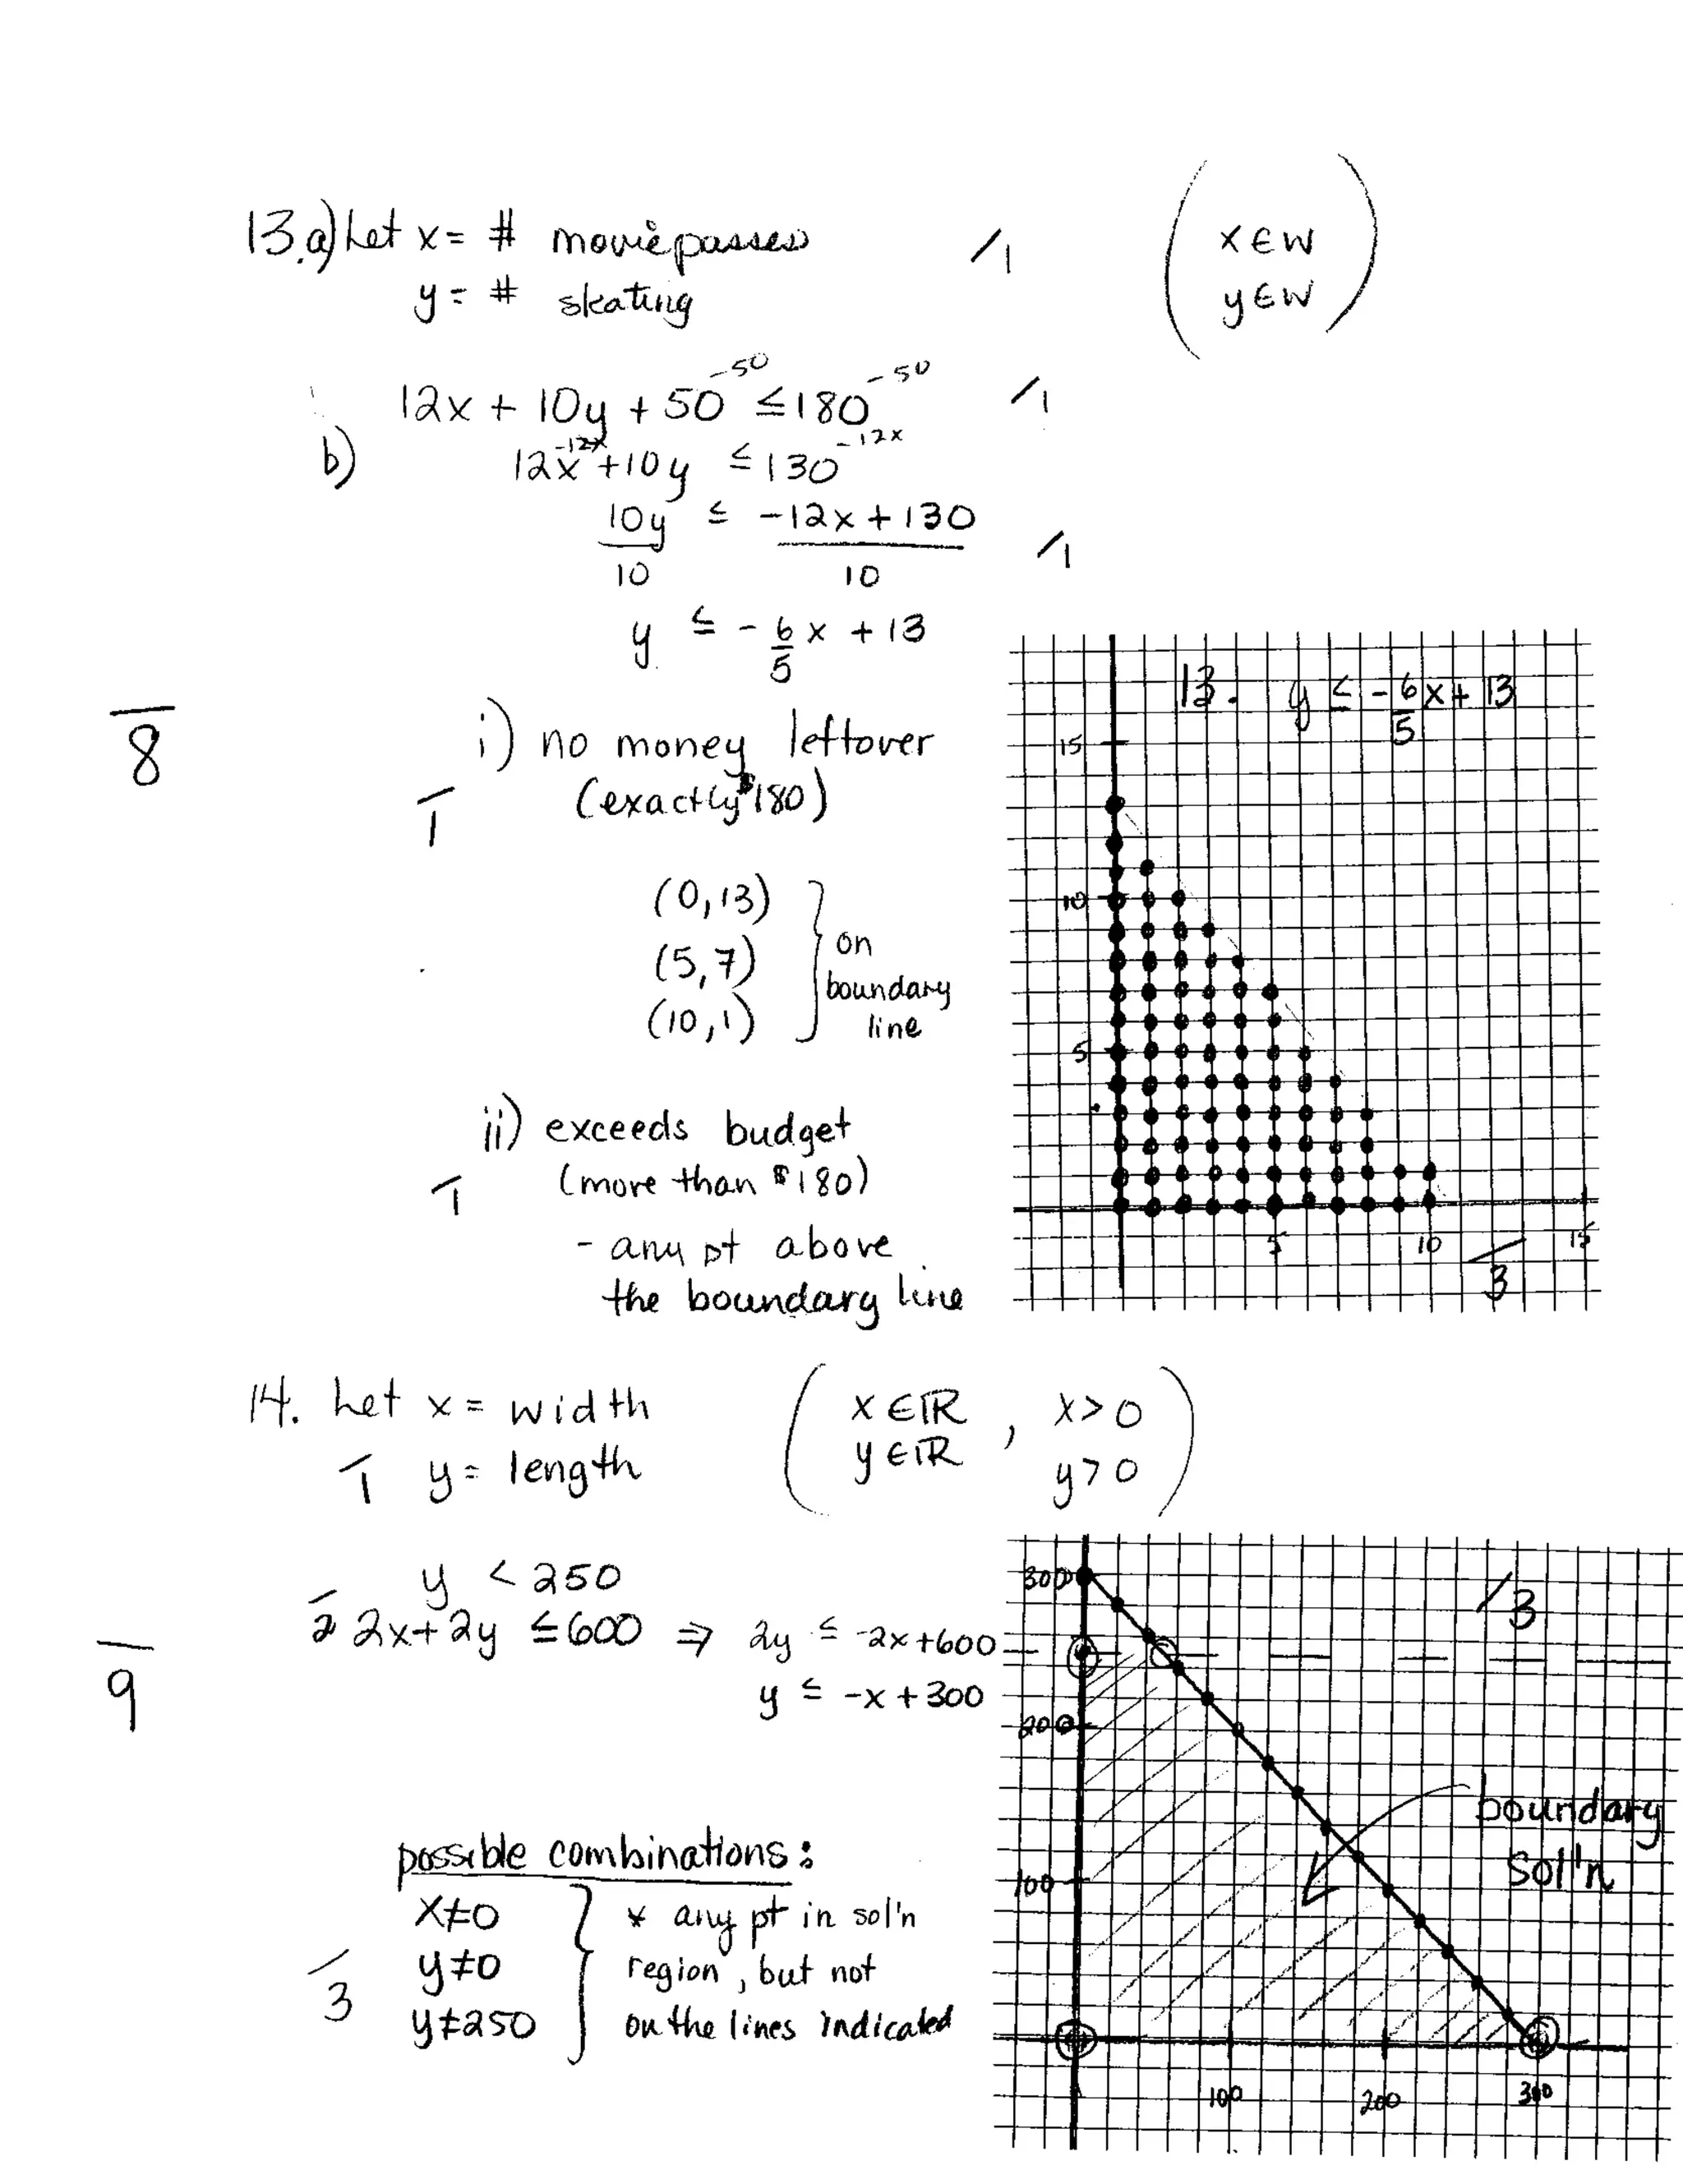 13.a) Let x = # movie passes /1 ( x ∈ W
y = # skating y ∈ W )
12x + 10y + 50 -50 ≤ 180 -50 /1
b) 12x -12x + 10y ≤ 130 -12x
10y ≤ -12x + 130
10 10 /1
y ≤ -6/5 x + 13
/8
i) no money leftover
/1 (exactly $180)
(0,13)
(5,7) } on boundary line
(10,1)
ii) exceeds budget
/1 (more than $180)
- any pt above
the boundary line
13. y ≤ -6/5 x + 13
15
10
5
5 10 15
/3
14. Let x = width ( x ∈ ℝ , x > 0
/1 y = length y ∈ ℝ y > 0 )
y < 250
/2 2x + 2y ≤ 600 ⇒ 2y ≤ -2x + 600
y ≤ -x + 300
/9
possible combinations:
x ≠ 0 * any pt in sol'n
y ≠ 0 region, but not
y ≠ 250 on the lines indicated
/3
/3
300
200
100
100 200 300
boundary
sol'n